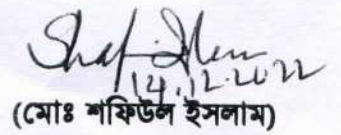 14.12.2022
(মোঃ শফিউল ইসলাম)